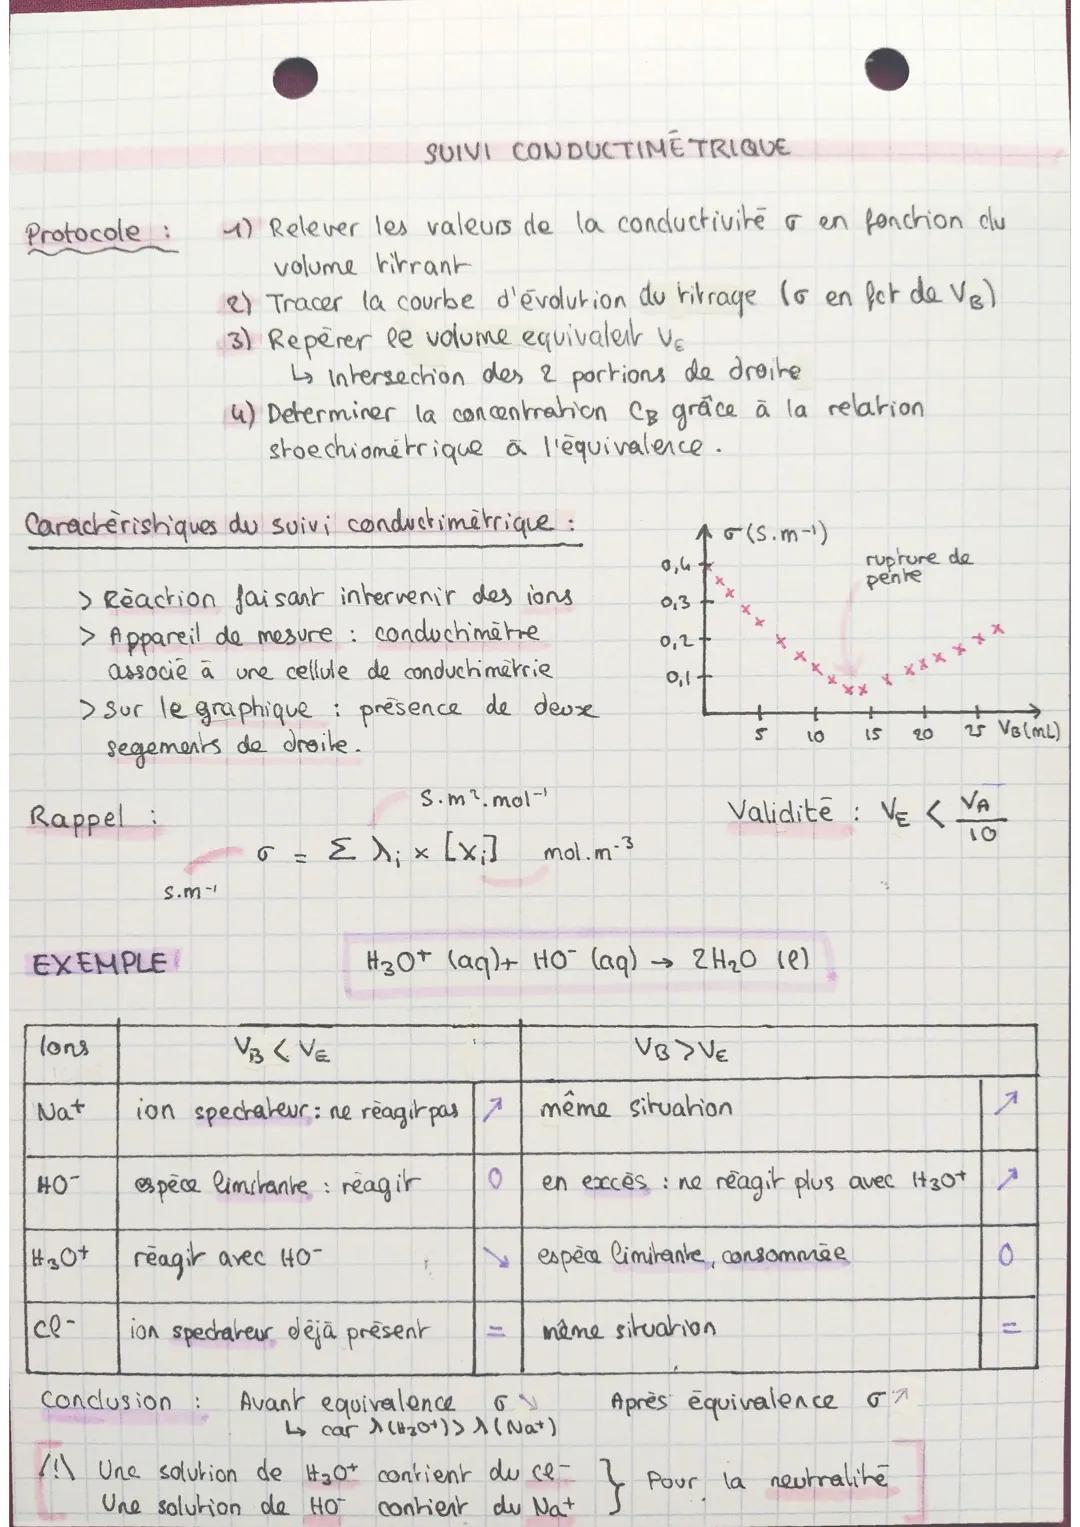 SUIVI CONDUCTIMÉTRIQUE
Protocole :
1) Relever les valeurs de la conductivité σ en fonction du
volume titrant
2) Tracer la courbe d'évolution du titrage (σ en fct de VB)
3) Repérer le volume equivalent VE
↳ Intersection des 2 portions de droite
4) Determiner la concentration CB grâce à la relation
stoechiométrique à l'équivalence.
Caractéristiques du suivi conductimétrique :
> Réaction faisant intervenir des ions
> Appareil de mesure : conductimètre
associé à une cellule de conductimétrie
> Sur le graphique : présence de deux
segements de droite.
σ (S.m⁻¹)
rupture de
pente
0,4
0,3
0,2
0,1
5 10 15 20 25 VB (mL)
Rappel :
S.m².mol⁻¹
σ = Σ λi × [Xi] mol.m⁻³
S.m⁻¹
Validité : VE < VA/10
EXEMPLE
H₃O⁺ (aq) + HO⁻ (aq) → 2H₂O (l)
Ions VB < VE VB > VE
Na⁺ ion spectateur : ne réagit pas ↗ même situation ↗
HO⁻ espèce limitante : réagit 0 en excès : ne réagit plus avec H₃O⁺ ↗
H₃O⁺ réagit avec HO⁻ ↘ espèce limitante, consommée 0
Cl⁻ ion spectateur déjà présent = même situation =
Conclusion : Avant equivalence σ ↘ Après équivalence σ ↗
↳ car λ(H₃O⁺) > λ(Na⁺)
/!\ Une solution de H₃O⁺ contient du Cl⁻
Une solution de HO⁻ contient du Na⁺
} Pour la neutralité